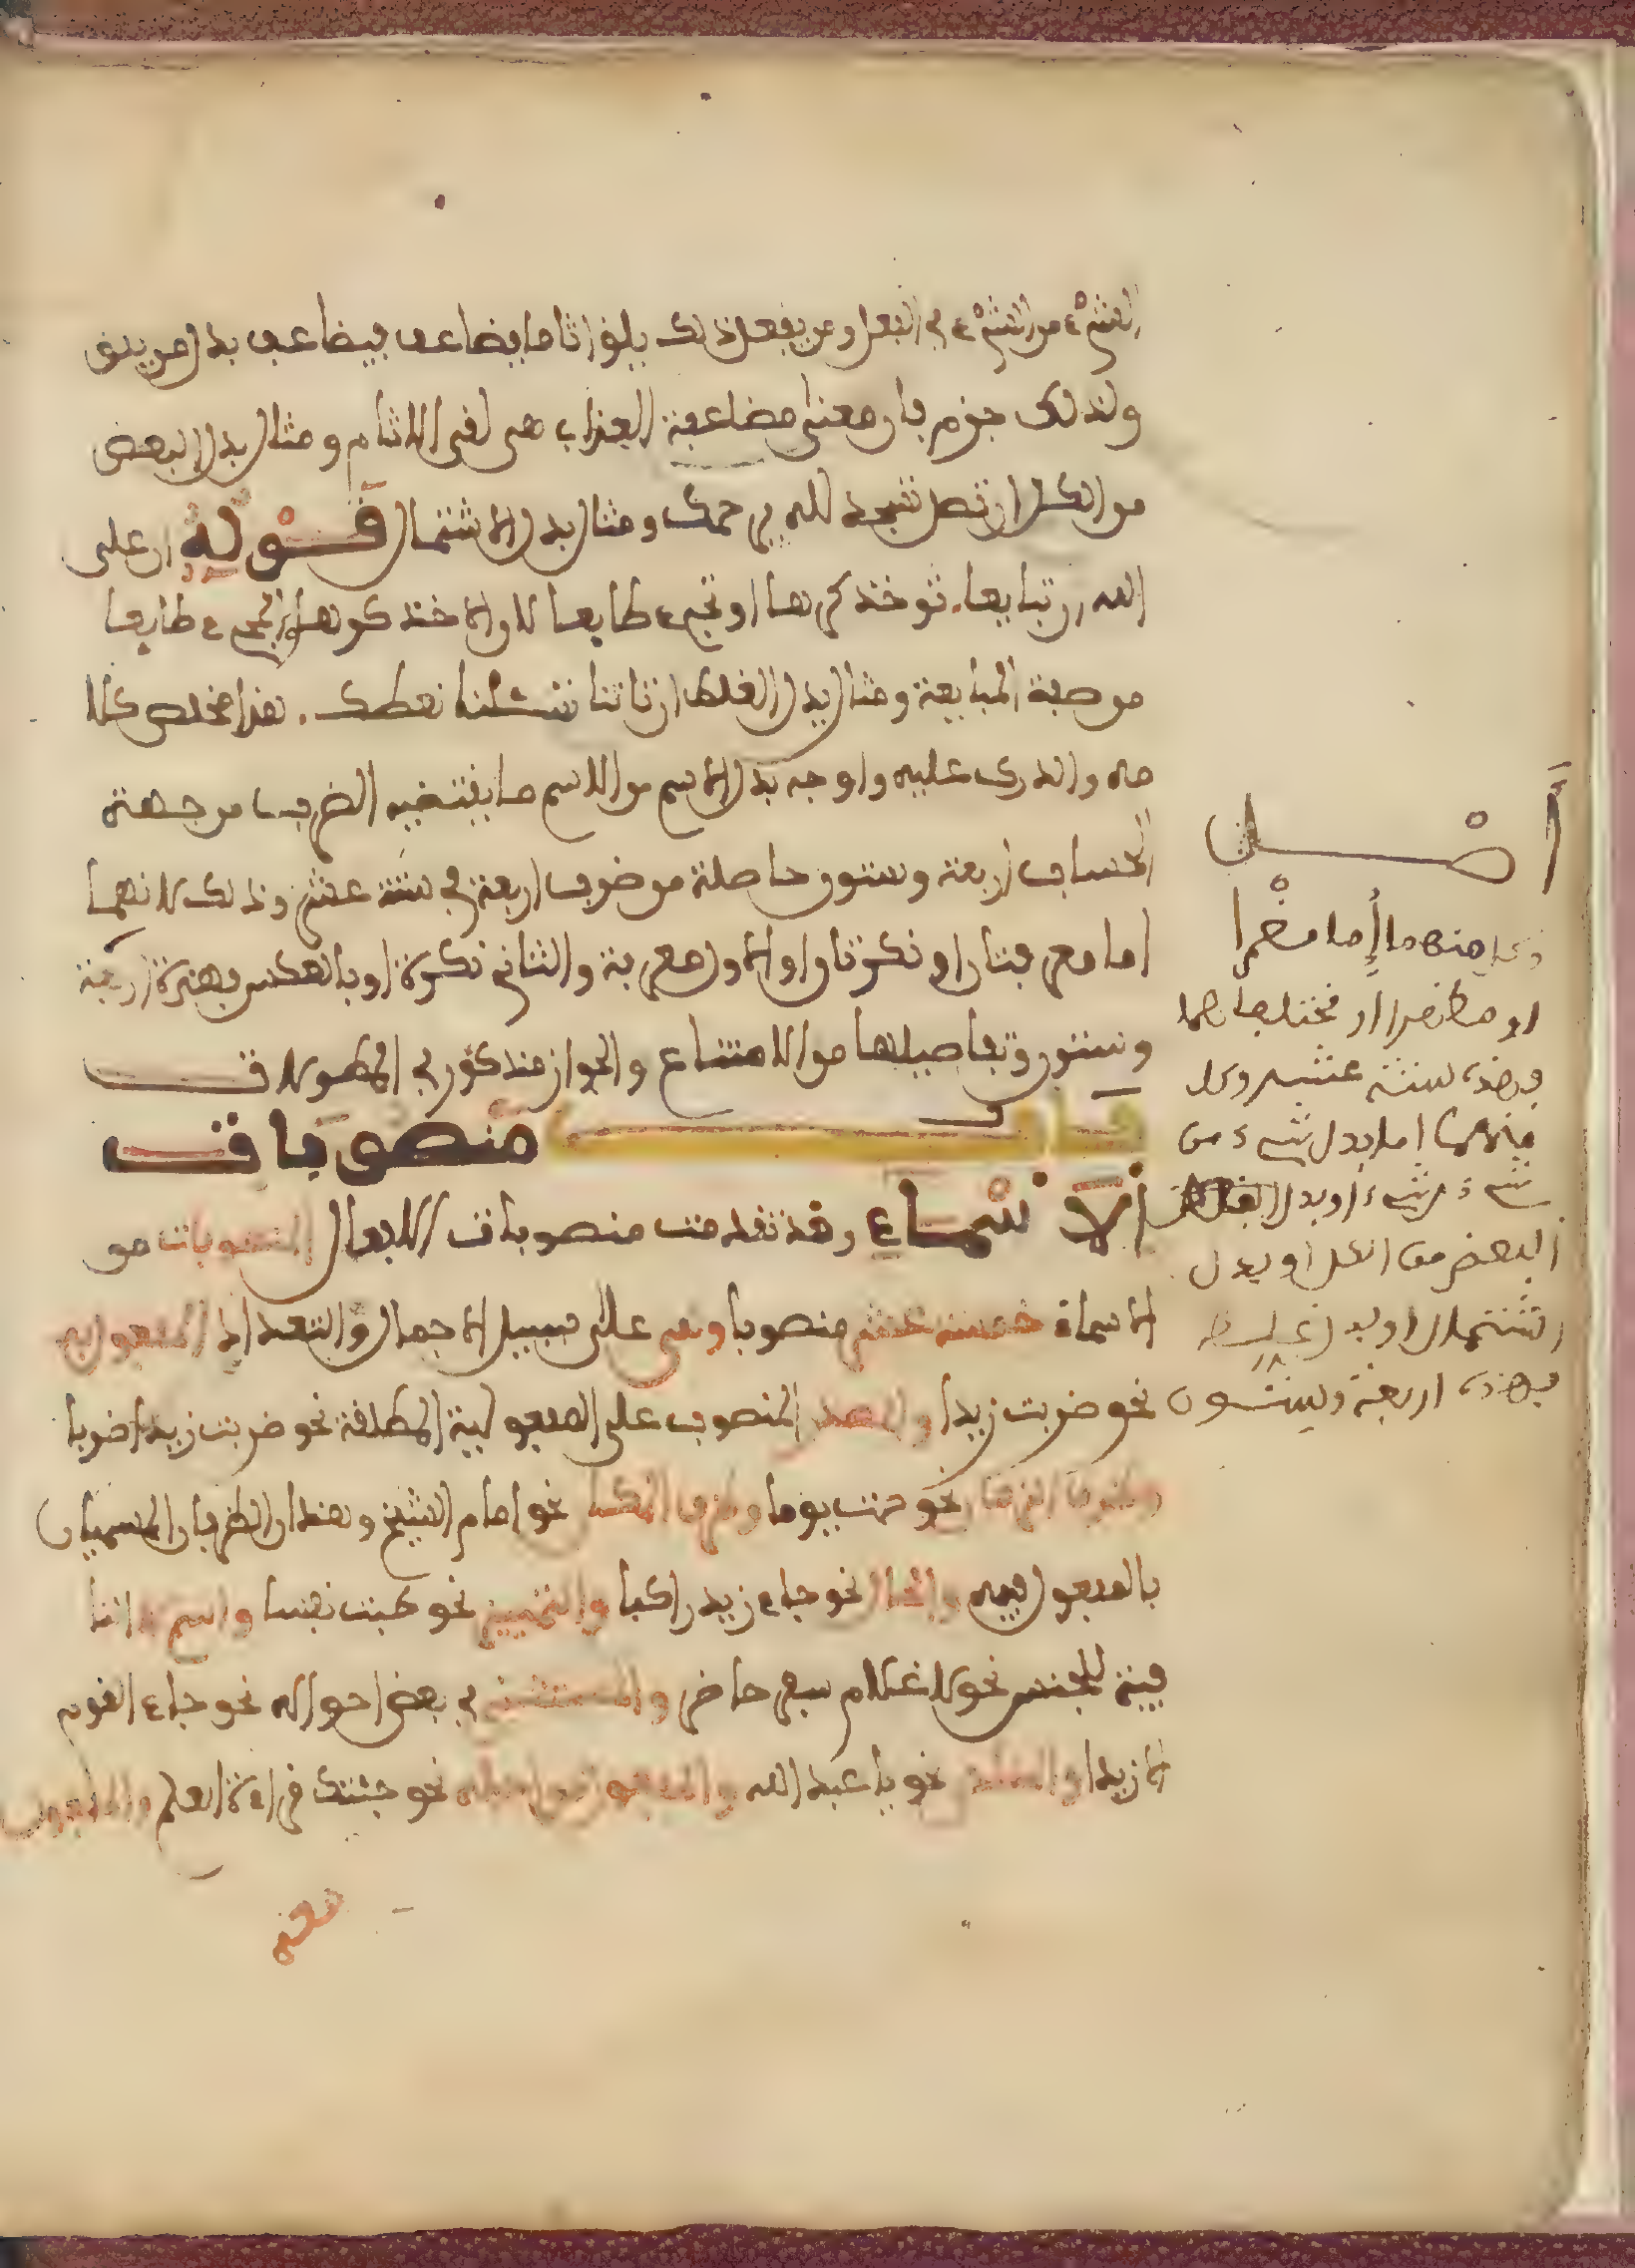 الشيء من الشيء في الفعل ومن يفعل ذلك يلق اثاما يضاعف فيضاعف بدل من يلق
ولذلك جزم فان معنى مضاعفة العذاب هي لقي الاثام ومثال بدل البعض
من الكل ان تصل تسجد لله يرحمك ومثال بدل الاشتمال قوله ان على
الله ان تبايعا. توخذ كرها او تجيء طايعا لان الاخذ كرها والمجيء طايعا
من صفة المبايعة ومثال بدل الغلط ان تاتنا تسئلنا نعطك. هذا مخلص كلا
مه والدرك عليه واوجه بدل الاسم من الاسم ما يقتضيه الضرب من جهة
الحساب اربعة وستون حاصلة من ضرب اربعة في ستة عشر وذلك لانهما
اما معرفتان او نكرتان او الاول معرفة والثاني نكرة او بالعكس فهذه اربعة
وستون وتفاصيلها من الامتناع والجواز مذكور في المطولات
باب منصوبات
الاسماء وقد تقدمت منصوبات الافعال المنصوبات من
الاسماء خمسة عشر منصوبا وهي على سبيل الاجمال والتعداد المفعول به
نحو ضربت زيدا والمصدر المنصوب على المفعولية المطلقة نحو ضربت زيدا ضربا
وظرف الزمان نحو صمت يوما وظرف المكان نحو امام الشيخ وهذان الظرفان المسميان
بالمفعول فيه والحال نحو جاء زيد راكبا والتمييز نحو طبت نفسا واسم لا النا
فية للجنس نحو لا غلام سفر حاضر والمستثنى في بعض احواله نحو جاء القوم
الا زيدا والمنادى نحو يا عبد الله والمفعول من اجله نحو جئتك قراءة العلم والمفعول
معه
اصل
وكل منهما إما مضمرا
او مظهرا او مختلفان
فهذه ستة عشر وكل
منهما اما بدل شيء من
شيء او بدل
البعض من الكل او بدل
اشتمال او بدل غلط
فهذه اربعة وستون